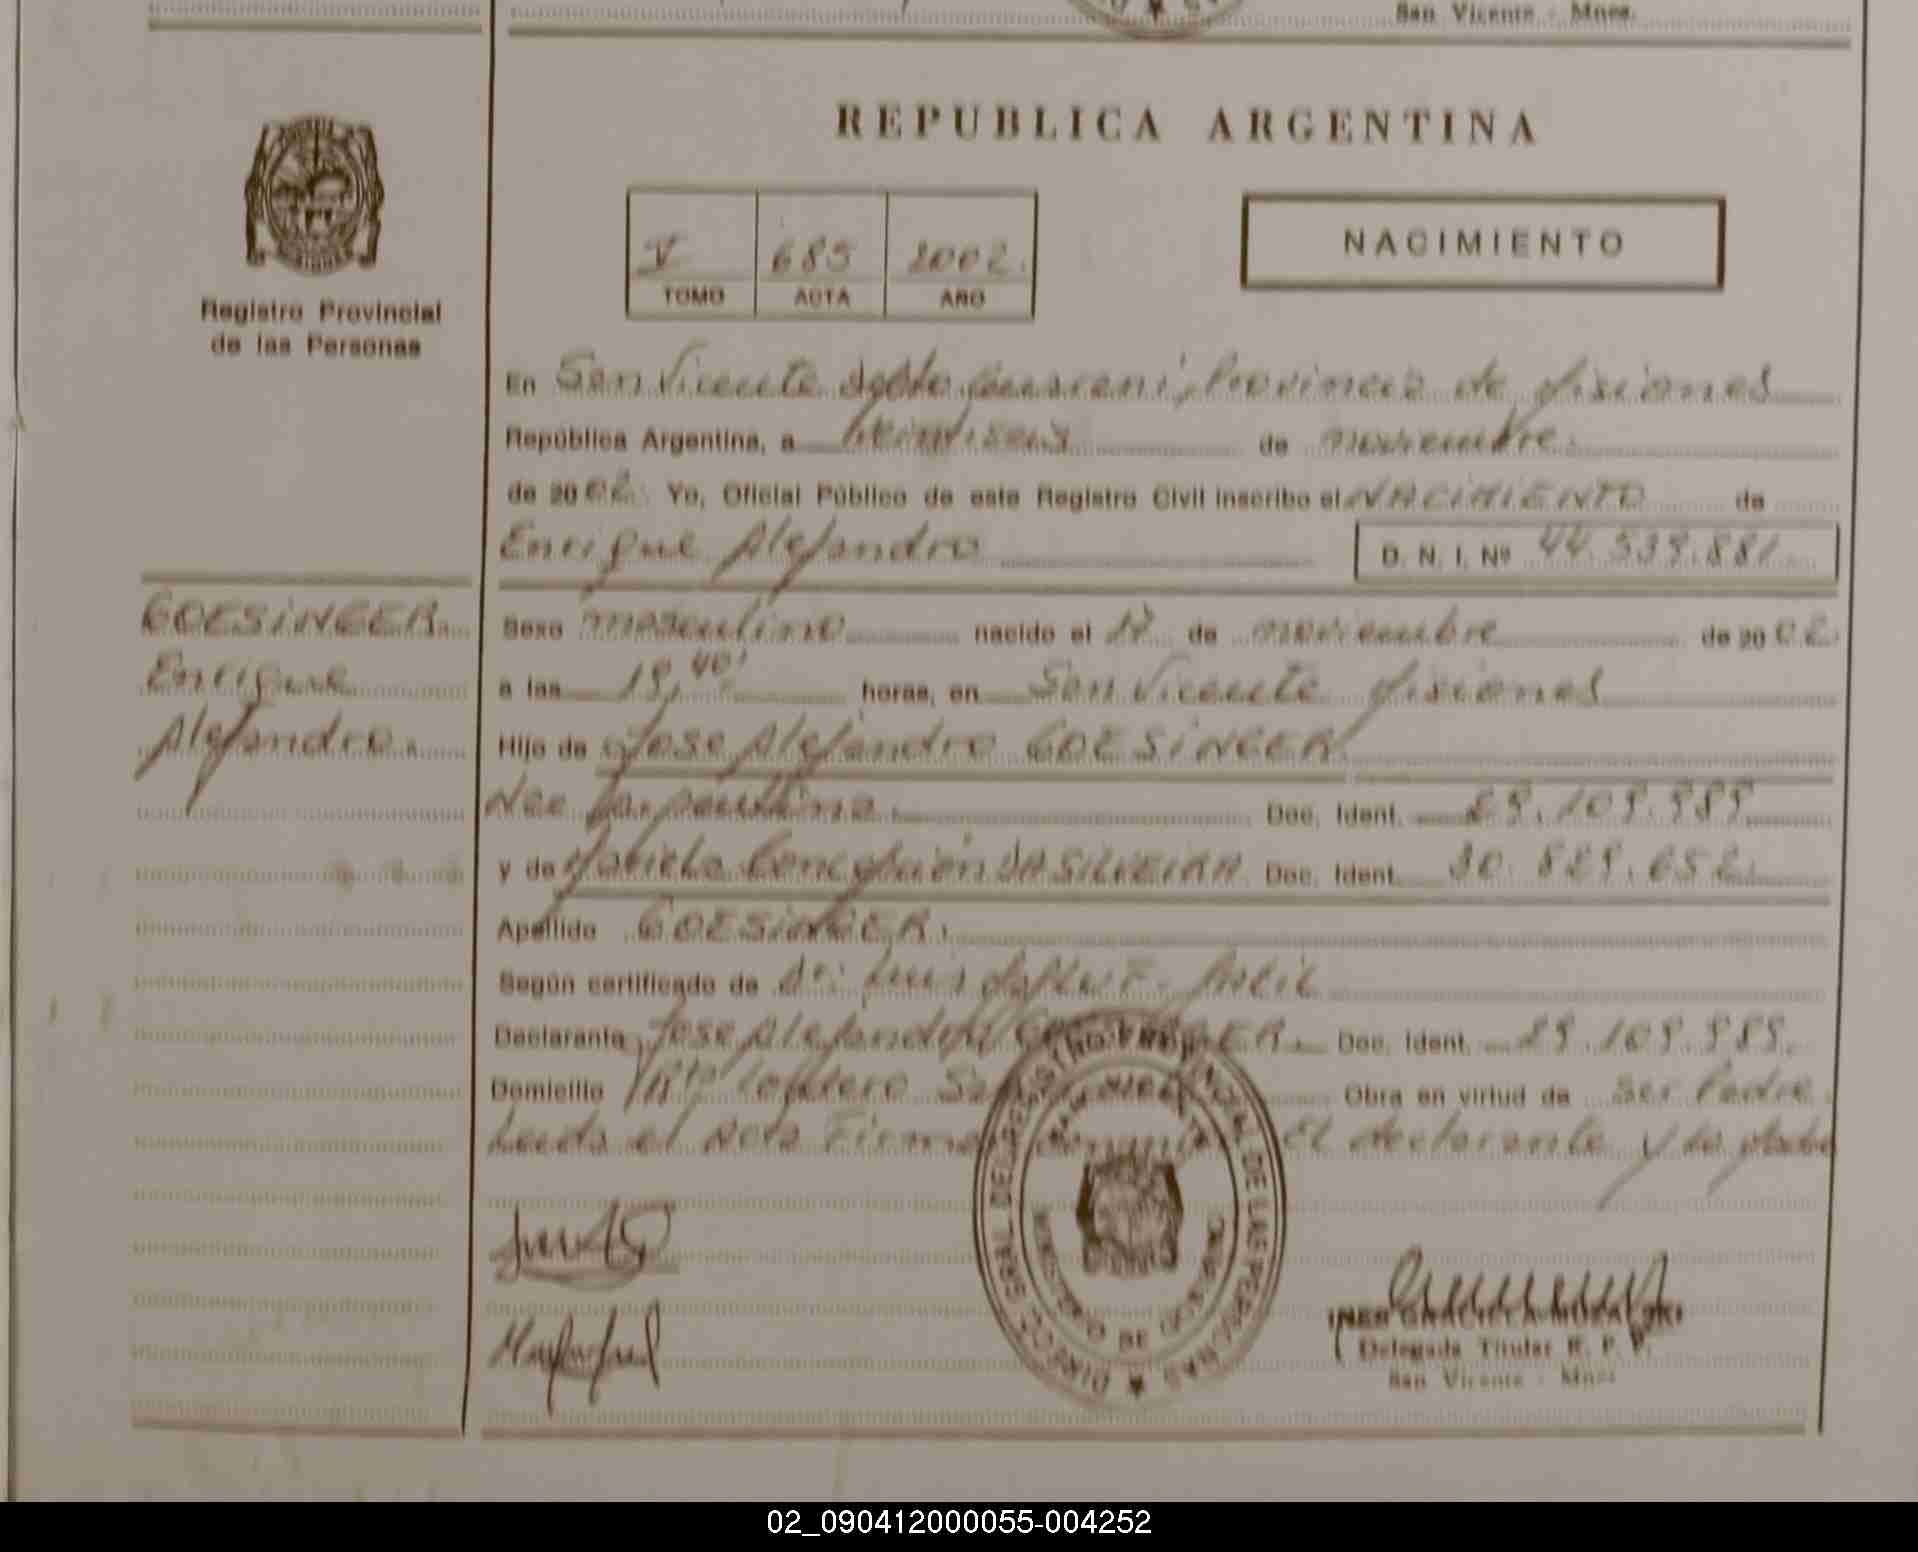 San Vicente - Mnes.
REPUBLICA ARGENTINA
NACIMIENTO
V 685 2002.
TOMO ACTA AÑO
Registro Provincial
de las Personas
En San Vicente Dpto Guarani, Provincia de Misiones
República Argentina, a Veintiseis de noviembre.
de 2002. Yo, Oficial Público de este Registro Civil inscribo el NACIMIENTO de
Enrique Alejandro D. N. I. Nº 44.539.881.
GOESINGER.
Enrique
Alejandro.
Sexo masculino nacido el de noviembre de 2002.
a las 19,40' horas, en San Vicente Misiones
Hijo de Jose Alejandro GOESINGER.
Nac Doc. Ident. 29.109.989
y de Concepción DA SILVEIRA Doc. Ident. 30.829.652.
Apellido GOESINGER.
Según certificado de Dr: Luis
Declarante Jose Alejandro GOESINGER. Doc. Ident. 29.109.989.
Domicilio Obra en virtud de Ser Padre.
Leida el Acta Firman El declarante y la
DIRECC. GRAL. DE REGISTRO PROVINCIAL DE LAS PERSONAS
SAN VICENTE
MISIONES
INES GRACIELA
Delegada Titular R. P. P.
San Vicente - Mnes
02_090412000055-004252